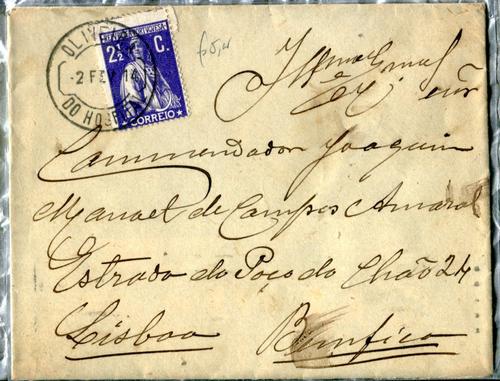 OLIVE
-2 FE 14
DO HOSPI
REPUBLICA PORTUGUESA
2½ C.
CORREIO
Illmo e Exmo
Snr
Commendador Joaquim
Manoel de Campos Amaral
Estrada do Poço do Chão 24
Lisboa Bemfica